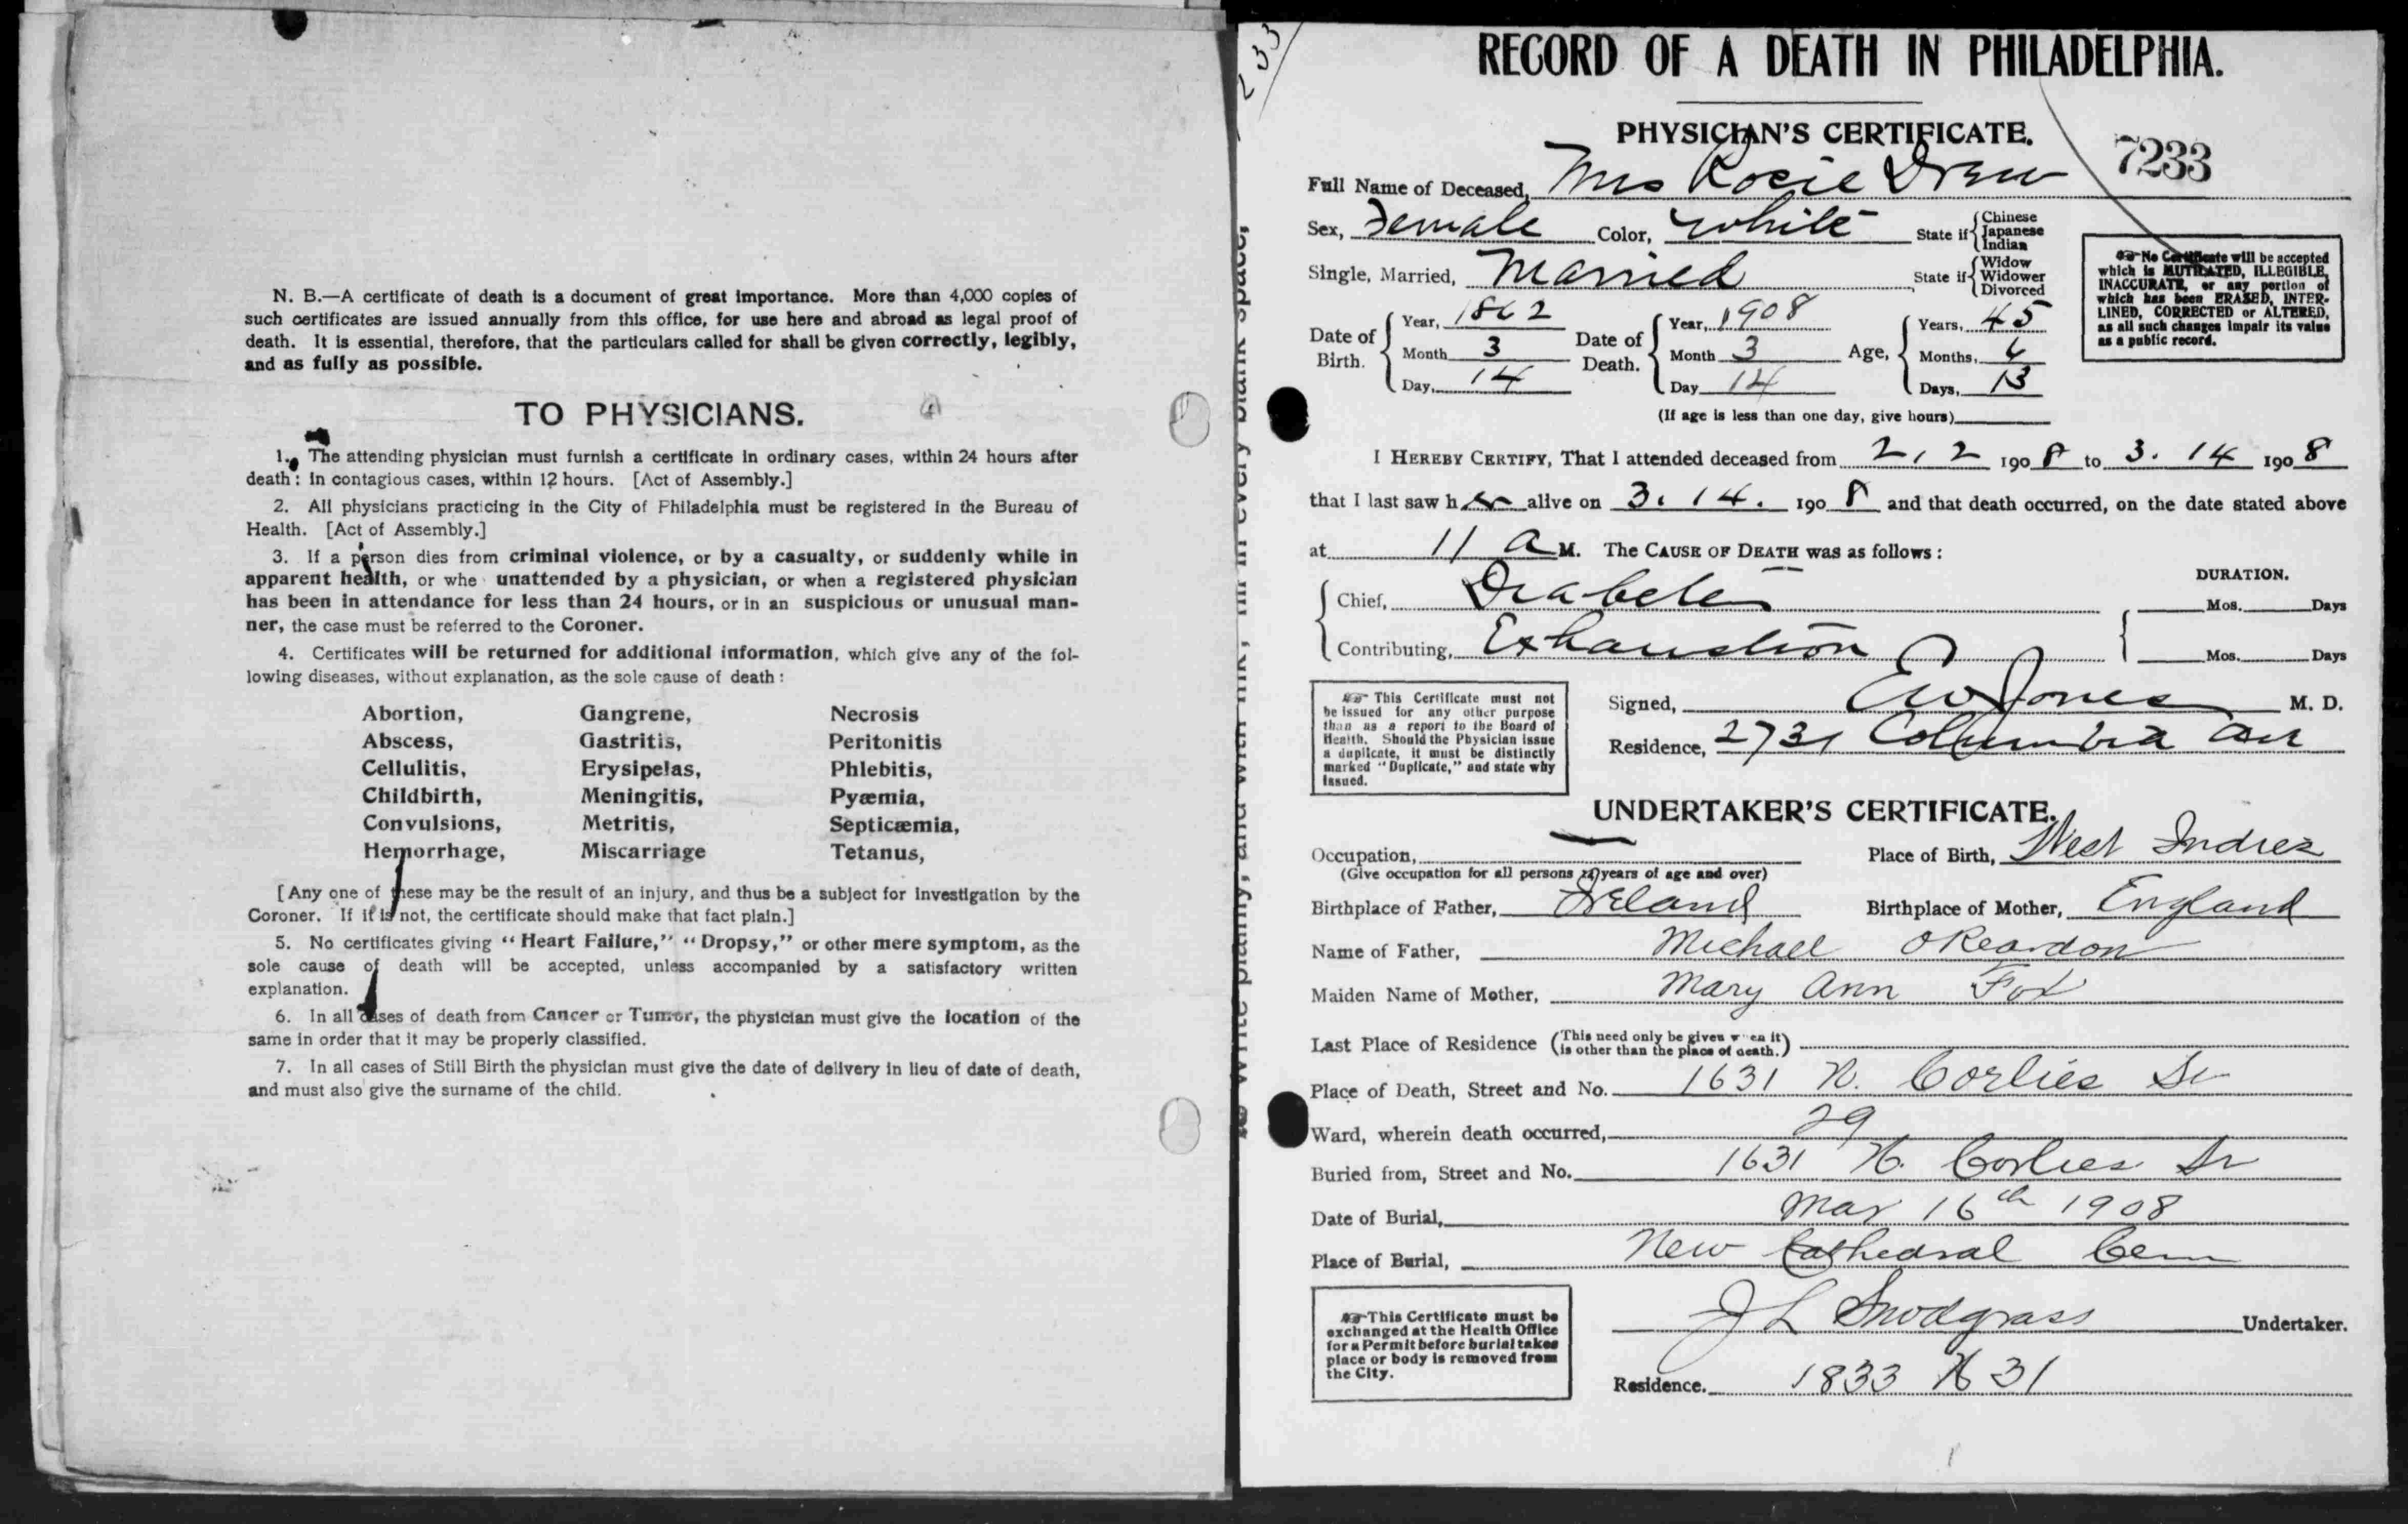 N. B.—A certificate of death is a document of great importance. More than 4,000 copies of
such certificates are issued annually from this office, for use here and abroad as legal proof of
death. It is essential, therefore, that the particulars called for shall be given correctly, legibly,
and as fully as possible.
TO PHYSICIANS.
1. The attending physician must furnish a certificate in ordinary cases, within 24 hours after
death: in contagious cases, within 12 hours. [Act of Assembly.]
2. All physicians practicing in the City of Philadelphia must be registered in the Bureau of
Health. [Act of Assembly.]
3. If a person dies from criminal violence, or by a casualty, or suddenly while in
apparent health, or whe unattended by a physician, or when a registered physician
has been in attendance for less than 24 hours, or in an suspicious or unusual man-
ner, the case must be referred to the Coroner.
4. Certificates will be returned for additional information, which give any of the fol-
lowing diseases, without explanation, as the sole cause of death:
Abortion, Gangrene, Necrosis
Abscess, Gastritis, Peritonitis
Cellulitis, Erysipelas, Phlebitis,
Childbirth, Meningitis, Pyæmia,
Convulsions, Metritis, Septicæmia,
Hemorrhage, Miscarriage Tetanus,
[Any one of these may be the result of an injury, and thus be a subject for investigation by the
Coroner. If it is not, the certificate should make that fact plain.]
5. No certificates giving "Heart Failure," "Dropsy," or other mere symptom, as the
sole cause of death will be accepted, unless accompanied by a satisfactory written
explanation.
6. In all cases of death from Cancer or Tumor, the physician must give the location of the
same in order that it may be properly classified.
7. In all cases of Still Birth the physician must give the date of delivery in lieu of date of death,
and must also give the surname of the child.
RECORD OF A DEATH IN PHILADELPHIA.
PHYSICIAN'S CERTIFICATE.
7233
Full Name of Deceased, Mrs Rosie Drew
Sex, Female Color, White State if Chinese Japanese Indian
Single, Married, Married State if Widow Widower Divorced
☞ No Certificate will be accepted
which is MUTILATED, ILLEGIBLE,
INACCURATE, or any portion of
which has been ERASED, INTER-
LINED, CORRECTED or ALTERED,
as all such changes impair its value
as a public record.
Date of Birth. Year, 1862 Month 3 Day, 14
Date of Death. Year, 1908 Month 3 Day 14
Age, Years, 45 Months, 6 Days, 13
(If age is less than one day, give hours)
I HEREBY CERTIFY, That I attended deceased from 2, 2 1908 to 3. 14 1908
that I last saw her alive on 3. 14. 1908 and that death occurred, on the date stated above
at 11 a M. The CAUSE OF DEATH was as follows:
DURATION.
Chief, Diabetes Mos. Days
Contributing, Exhaustion Mos. Days
☞ This Certificate must not
be issued for any other purpose
than as a report to the Board of
Health. Should the Physician issue
a duplicate, it must be distinctly
marked "Duplicate," and state why
issued.
Signed, E W Jones M. D.
Residence, 2731 Columbia Ave
UNDERTAKER'S CERTIFICATE.
Occupation, — Place of Birth, West Indies
(Give occupation for all persons 10 years of age and over)
Birthplace of Father, Ireland Birthplace of Mother, England
Name of Father, Michael O Reardon
Maiden Name of Mother, Mary Ann Fox
Last Place of Residence (This need only be given when it is other than the place of death.)
Place of Death, Street and No. 1631 N. Corlies St
Ward, wherein death occurred, 29
Buried from, Street and No. 1631 N. Corlies St
Date of Burial, Mar 16th 1908
Place of Burial, New Cathedral Cem
☞ This Certificate must be
exchanged at the Health Office
for a Permit before burial takes
place or body is removed from
the City.
J L Snodgrass Undertaker.
Residence. 1833 N 31